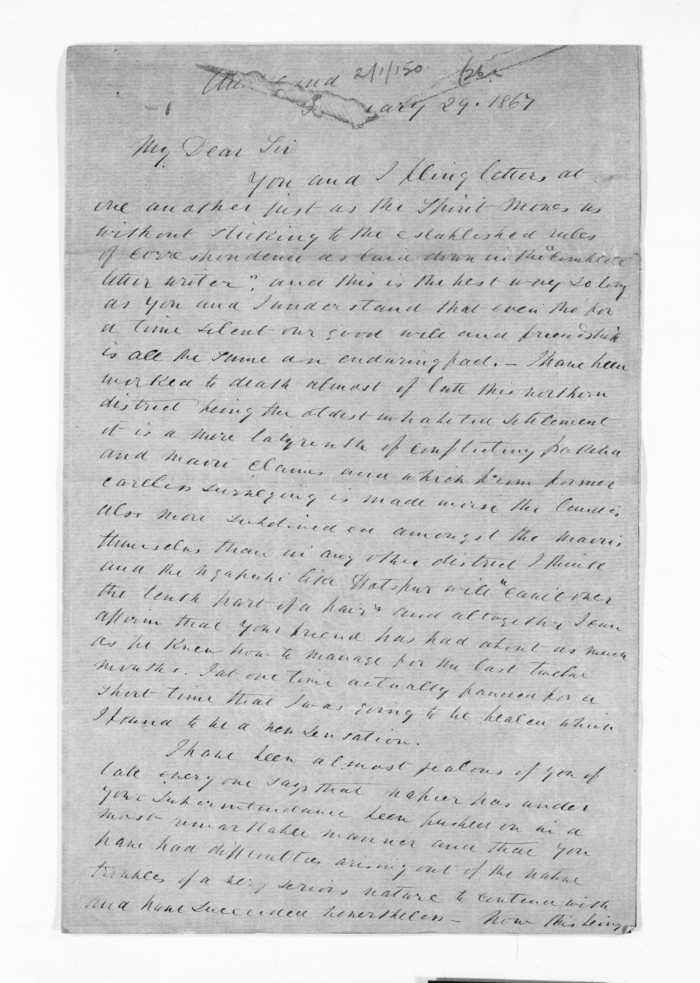 2/1/150
uary 29. 1867
My Dear Sir
You and I fling letters at
one another just as the Spirit moves us
without sticking to the established rules
of correspondence as laid down in the "Complete
letter writer", and this is the best way so long
as you and I understand that even tho for
a time silent our good will and friendship
is all the same an enduring fact. — I have been
worked to death almost of late this northern
district being the oldest inhabited settlement
it is a mere labyrinth of conflicting pakeha
and maori claims and which from former
careless surveying is made worse the land is
also more subdivided amongst the maoris
themselves than in any other district I think
and the Ngapuhi like Hotspur will "cavil over
the tenth part of a hair" and altogether I can
affirm that your friend has had about as much
as he knew how to manage for the last twelve
months. I at one time actually fancied for a
short time that I was going to be beaten which
I found to be a new sensation.
I have been almost jealous of you of
late every one says that Napier has under
your Superintendance been pushed on in a
most remarkable manner and that you
have had difficulties arising out of the native
troubles of a very serious nature to contend with
and have succeeded nevertheless — now this being